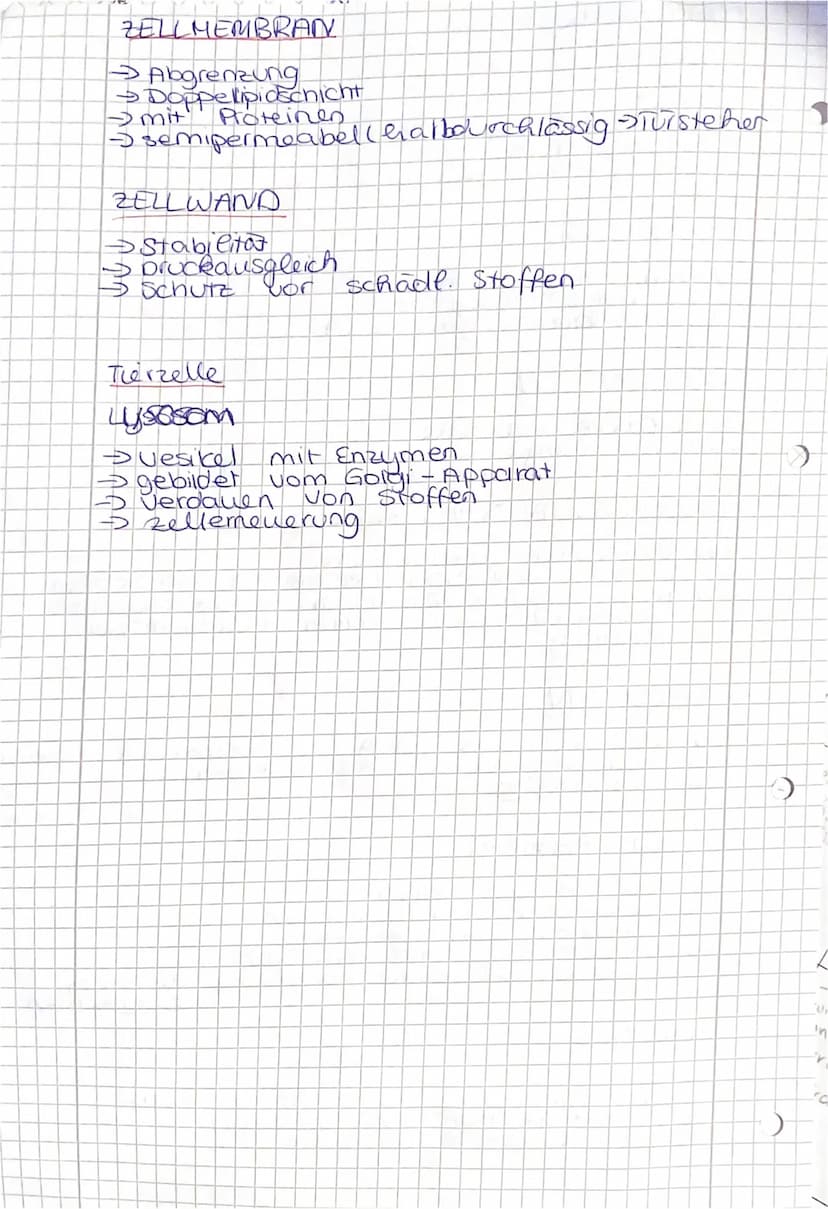 ZELLMEMBRAN
→ Abgrenzung
→ Doppellipidschicht
→ mit Proteinen
→ semipermeabel (halbdurchlässig → Türsteher
ZELLWAND
→ Stabilität
→ Druckausgleich
→ Schutz vor schädl. Stoffen
Tierzelle
Lysosom
→ Vesikel mit Enzymen
→ gebildet vom Golgi-Apparat
→ Verdauen von Stoffen
→ Zellerneuerung